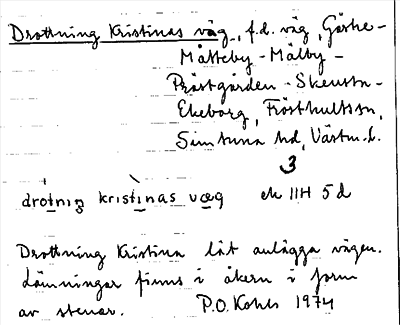 Drottning Kristinas väg, f.d. väg, Göske-
Måtteby - Mälby -
Prästgården - Skensta -
Ekeborg, Frösthultssn,
Simtuna hd, Västm.l.
3
drotniŋ kristinas væg ek IIH 5d
Drottning Kristina lät anlägga vägen.
Lämningar finns i åkern i form
av stenar. P.O. Kohls 1974